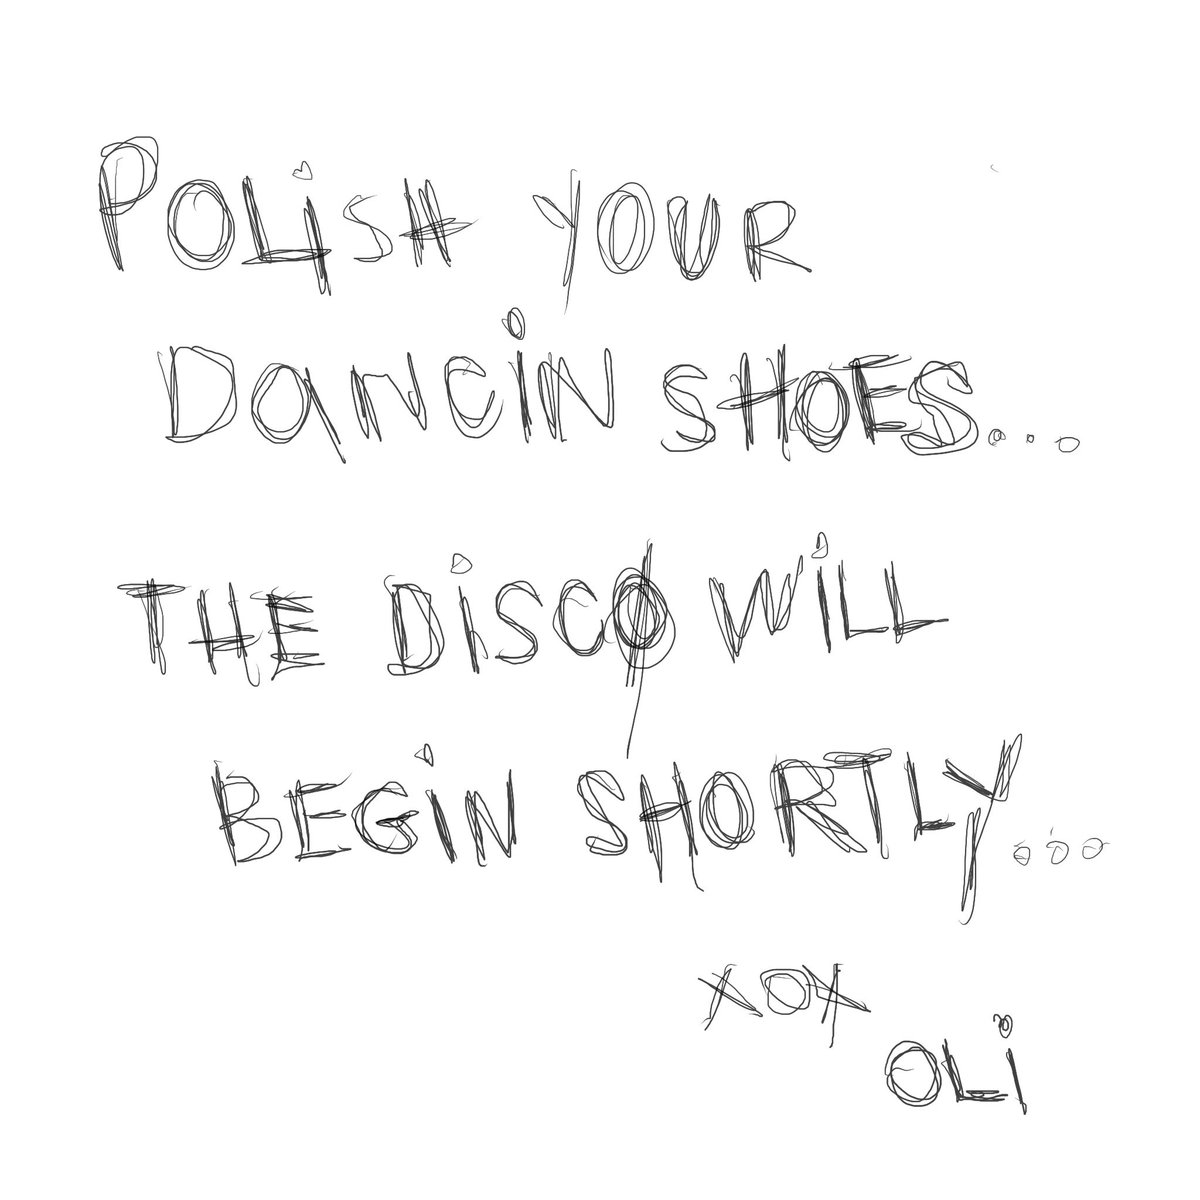 POLiSH YOUR
DANCiN SHOES...
THE DiSCO WiLL
BEGiN SHORTLY...
XOX
OLi